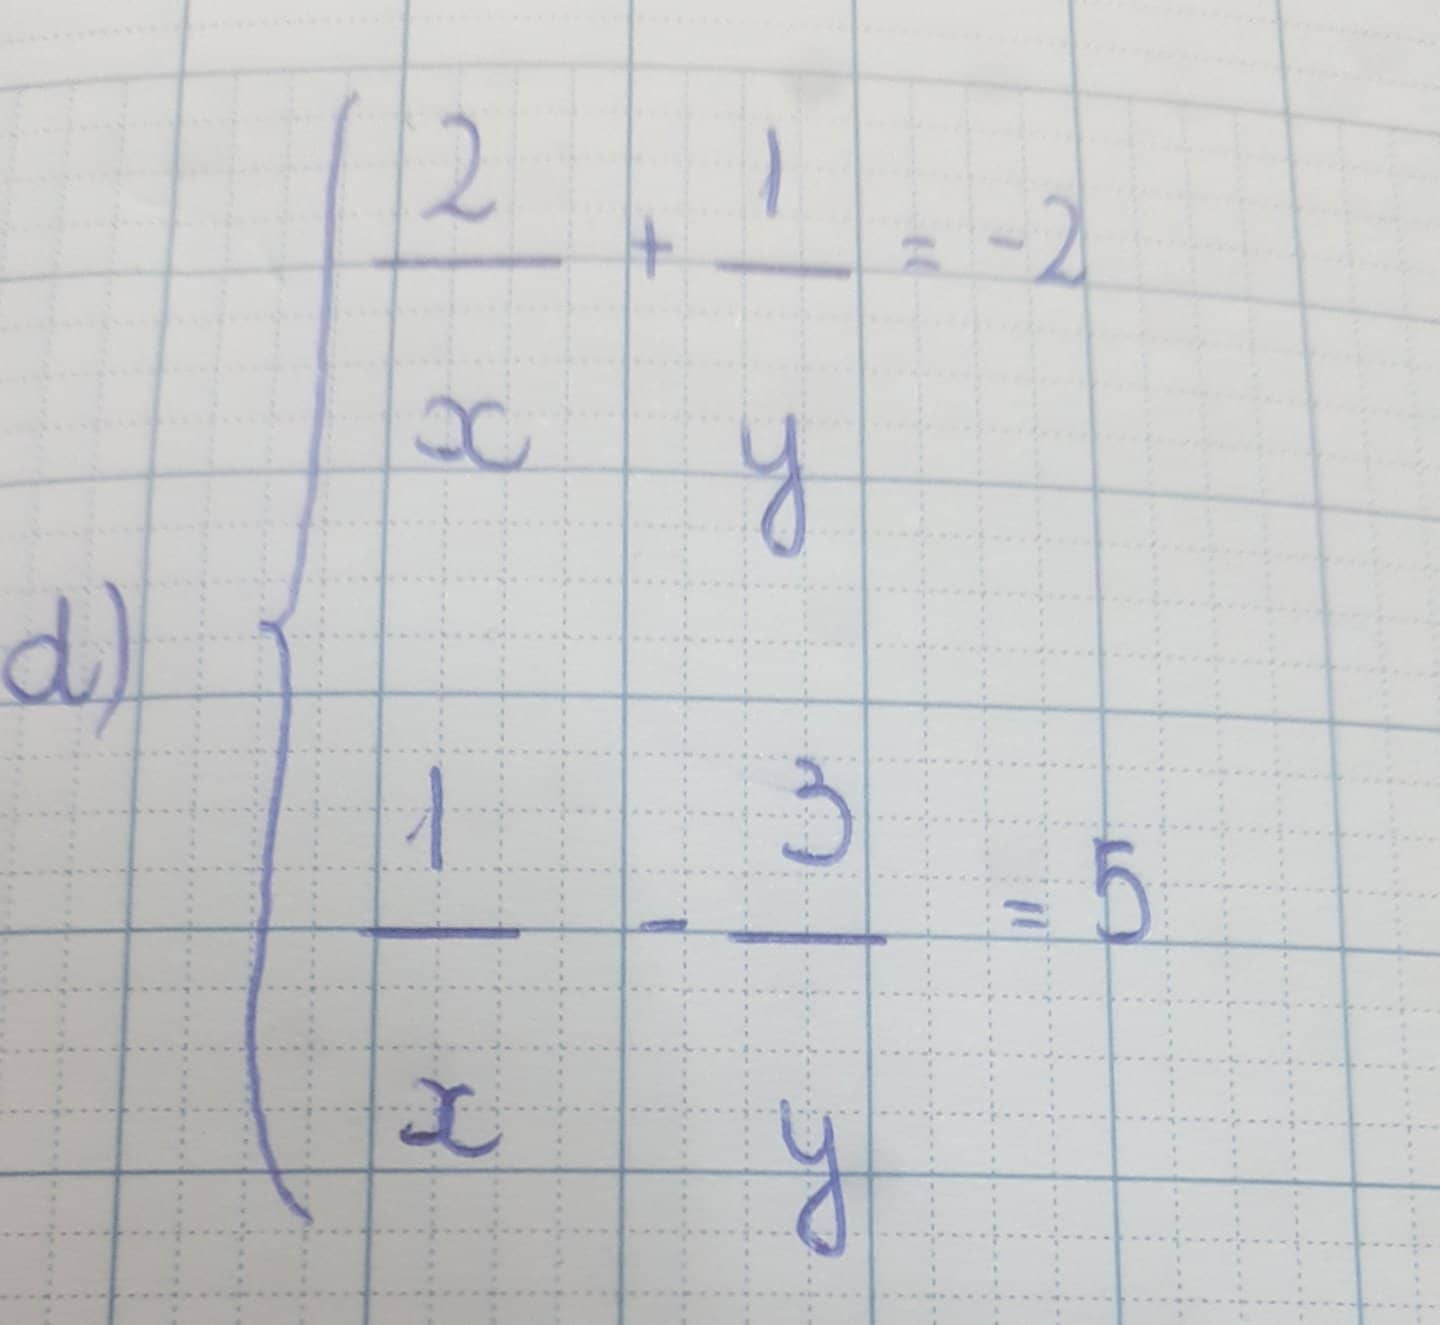 2/x + 1/y = -2
d)
1/x - 3/y = 5